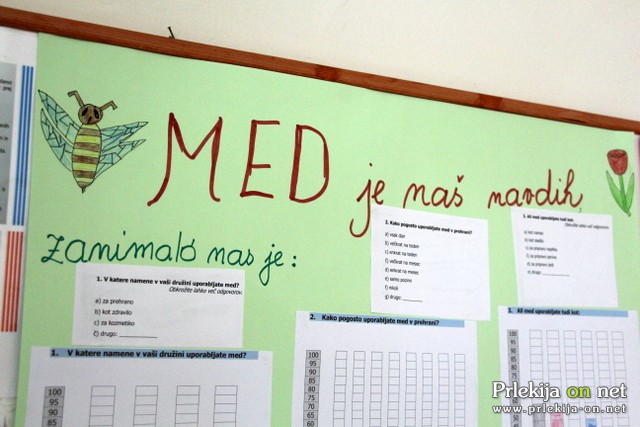 MED je naš navdih,
Zanimalo nas je:
1. V katere namene v vaši družini uporabljate med?
Obkrožite lahko več odgovorov.
a) za prehrano
b) kot zdravilo
c) za kozmetiko
č) drugo:
2. Kako pogosto uporabljate med v prehrani?
a) vsak dan
b) večkrat na teden
c) enkrat na teden
č) večkrat na mesec
d) enkrat na mesec
e) samo pozimi
f) nikoli
g) drugo:
3. Ali med uporabljate tudi kot:
Obkrožite lahko več odgovorov.
1. V katere namene v vaši družini uporabljate med?
100
95
90
85
2. Kako pogosto uporabljate med v prehrani?
100
95
90
85
80
75
70
65
60
3. Ali med uporabljate tudi kot:
100
95
90
85
80
Prlekija on net
www.prlekija-on.net